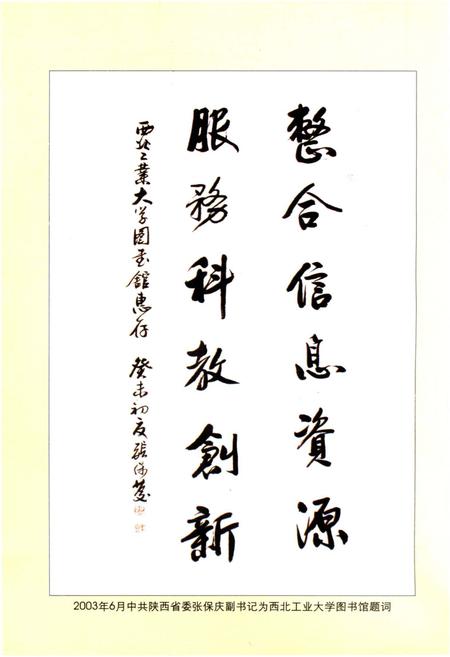 整合信息資源
服務科教創新
西北工業大学图书館惠存 癸未初夏張保慶
2003年6月中共陕西省委张保庆副书记为西北工业大学图书馆题词